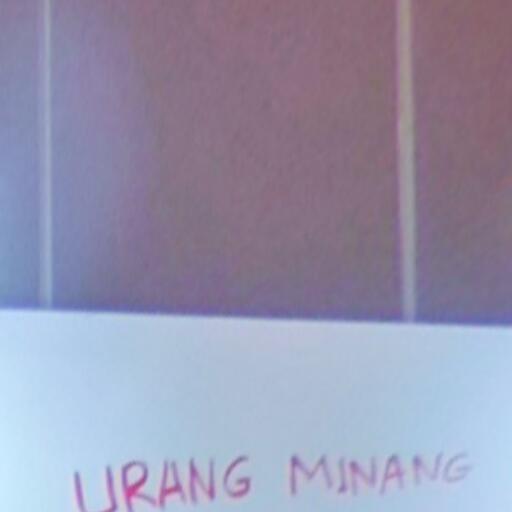 URANG MINANG